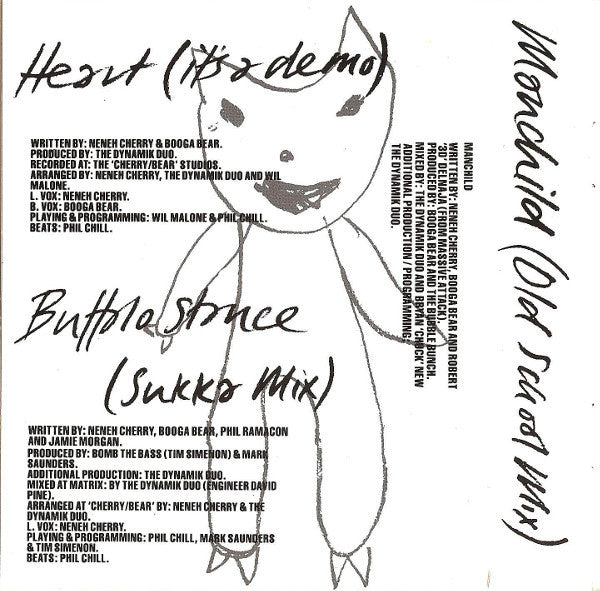 Heart (it's a demo)
WRITTEN BY: NENEH CHERRY & BOOGA BEAR.
PRODUCED BY: THE DYNAMIK DUO.
RECORDED AT: THE 'CHERRY/BEAR' STUDIOS.
ARRANGED BY: NENEH CHERRY, THE DYNAMIK DUO AND WIL
MALONE.
L. VOX: NENEH CHERRY.
B. VOX: BOOGA BEAR.
PLAYING & PROGRAMMING: WIL MALONE & PHIL CHILL.
BEATS: PHIL CHILL.
Buffalo stance
(Sukka Mix)
WRITTEN BY: NENEH CHERRY, BOOGA BEAR, PHIL RAMACON
AND JAMIE MORGAN.
PRODUCED BY: BOMB THE BASS (TIM SIMENON) & MARK
SAUNDERS.
ADDITIONAL PRODUCTION: THE DYNAMIK DUO.
MIXED AT MATRIX: BY THE DYNAMIK DUO (ENGINEER DAVID
PINE).
ARRANGED AT 'CHERRY/BEAR' BY: NENEH CHERRY & THE
DYNAMIK DUO.
L. VOX: NENEH CHERRY.
PLAYING & PROGRAMMING: PHIL CHILL, MARK SAUNDERS
& TIM SIMENON.
BEATS: PHIL CHILL.
Manchild (Old School Mix)
MANCHILD
WRITTEN BY: NENEH CHERRY, BOOGA BEAR AND ROBERT
'3D' DELNAJA (FROM MASSIVE ATTACK)
PRODUCED BY: BOOGA BEAR AND THE BUBBLE BUNCH.
MIXED BY: THE DYNAMIK DUO AND BRYAN 'CHUCK' NEW
ADDITIONAL PRODUCTION / PROGRAMMING:
THE DYNAMIK DUO.